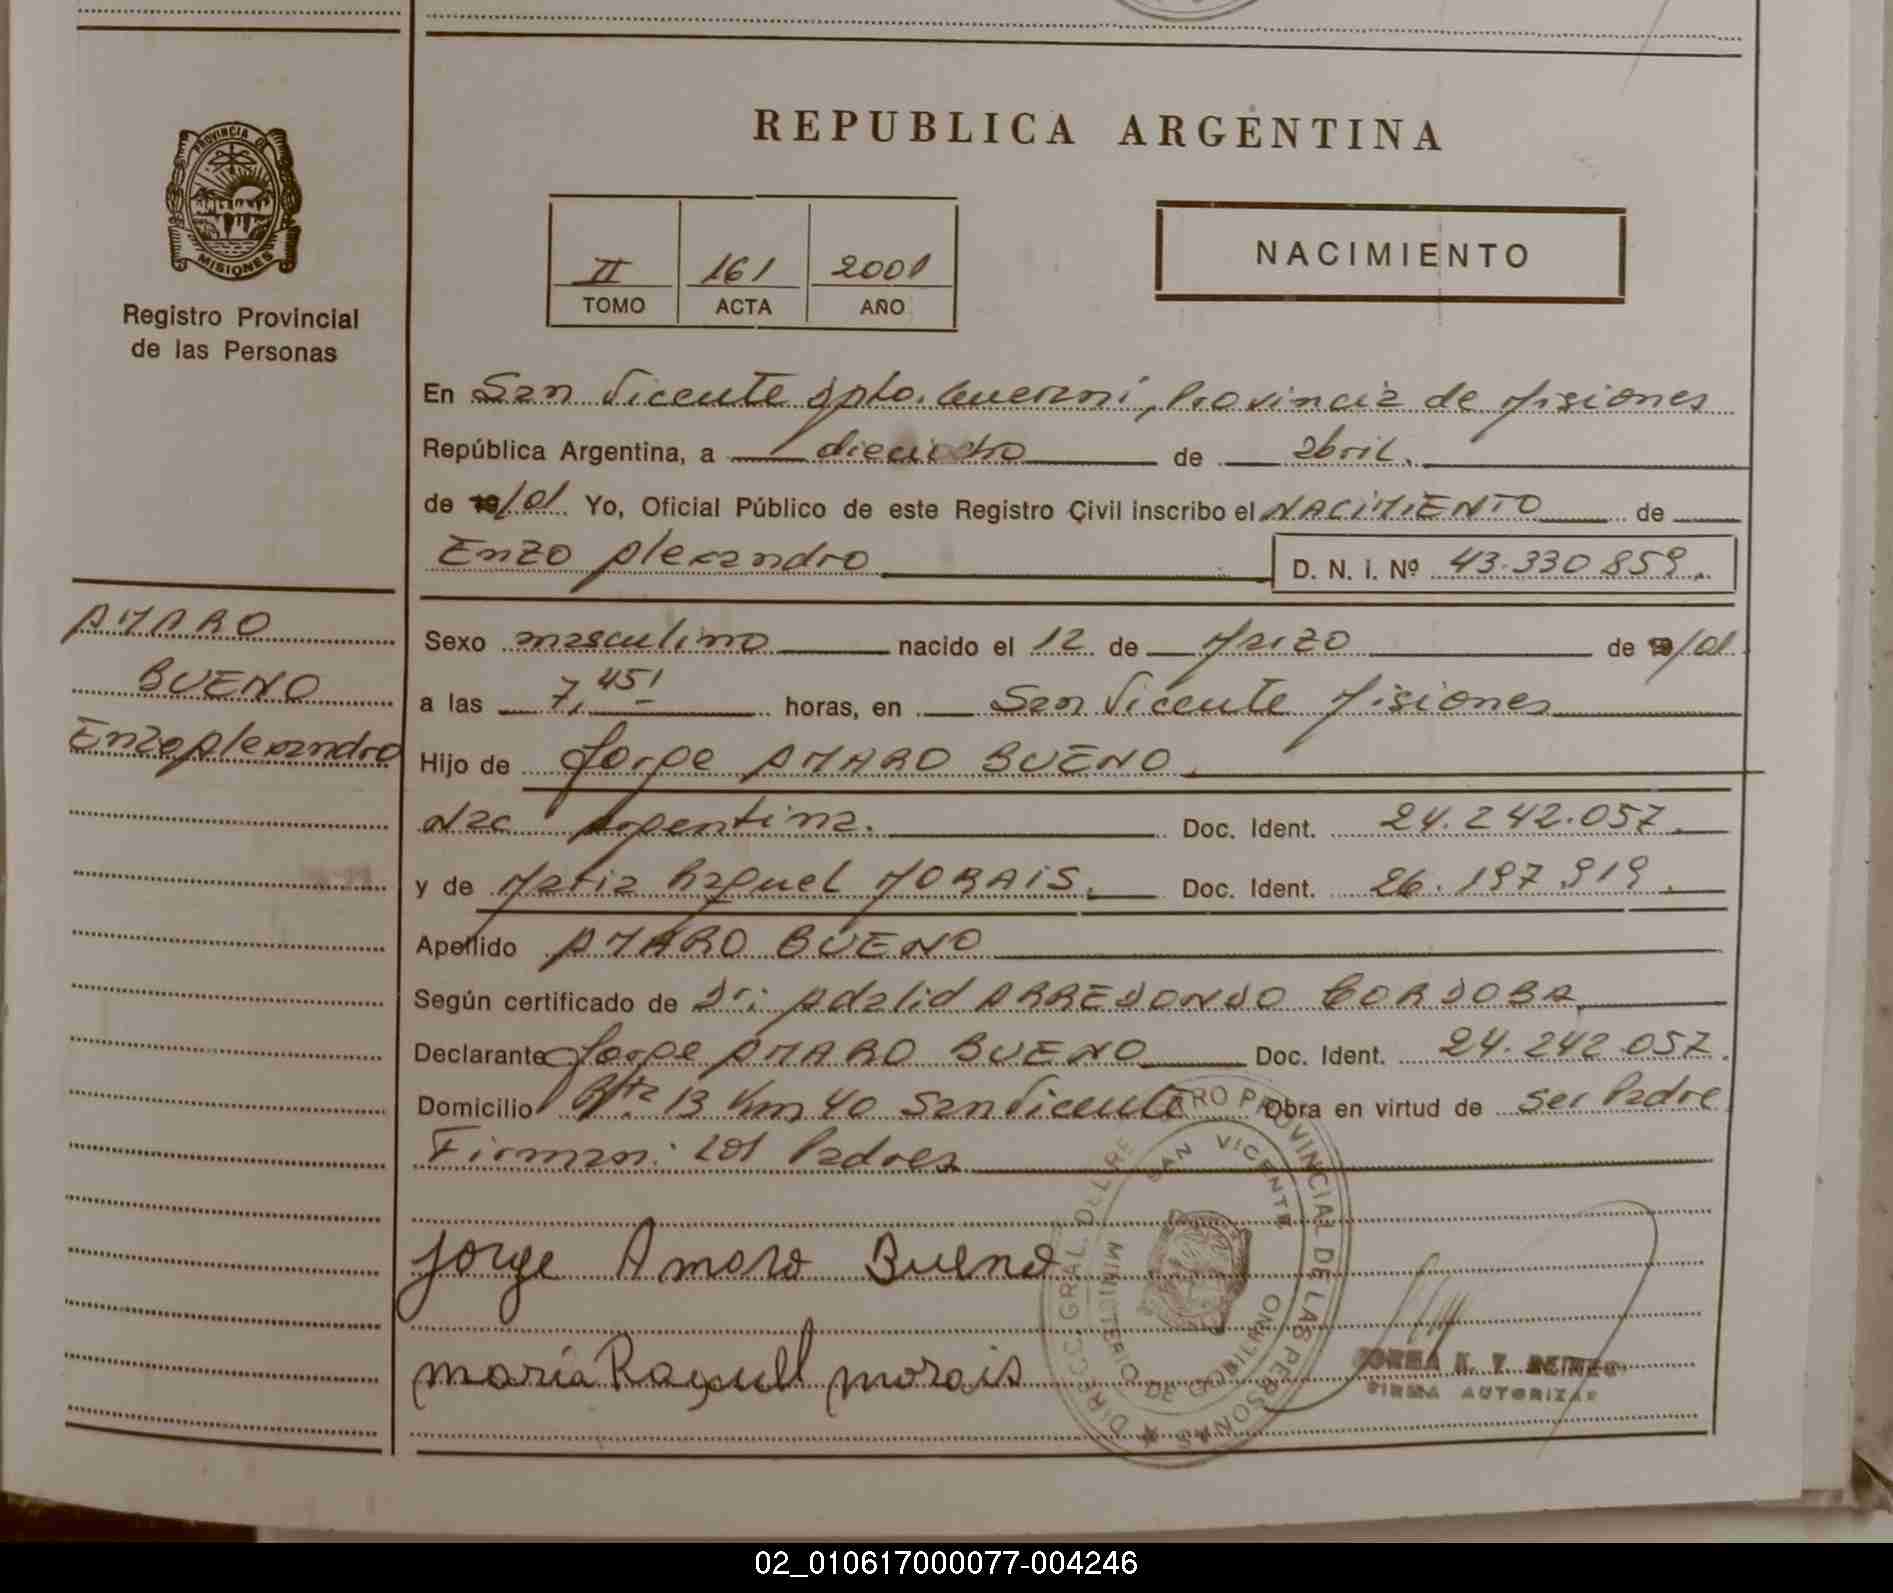 REPUBLICA ARGENTINA
PROVINCIA D
MISIONES
Registro Provincial
de las Personas
II 161 2001
TOMO ACTA AÑO
NACIMIENTO
En San Vicente Dpto. Guaraní, Provincia de Misiones
República Argentina, a dieciocho de abril.
de 19/01 Yo, Oficial Público de este Registro Civil inscribo el NACIMIENTO de
Enzo Alexandro D. N. I. Nº 43.330.859.
AMARO
BUENO
Enzo Alexandro
Sexo masculino nacido el 12 de Marzo de 19/01
a las 7,45' horas, en San Vicente Misiones
Hijo de Jorge AMARO BUENO
Nac Argentina. Doc. Ident. 24.242.057.
y de Maria Raquel MORAIS. Doc. Ident. 26.197.919.
Apellido AMARO BUENO
Según certificado de Dr: Adalid ARREDONDO CORDOBA
Declarante Jorge AMARO BUENO Doc. Ident. 24.242.057.
Domicilio Rta 13 Km 40 San Vicente Obra en virtud de ser Padre
Firman: los Padres
Jorge Amaro Bueno
maria Raquell morais
DIRECC. GRAL. DEL REGISTRO PROVINCIAL DE LAS PERSONAS
SAN VICENTE
MINISTERIO DE GOBIERNO
FIRMA AUTORIZAD
02_010617000077-004246